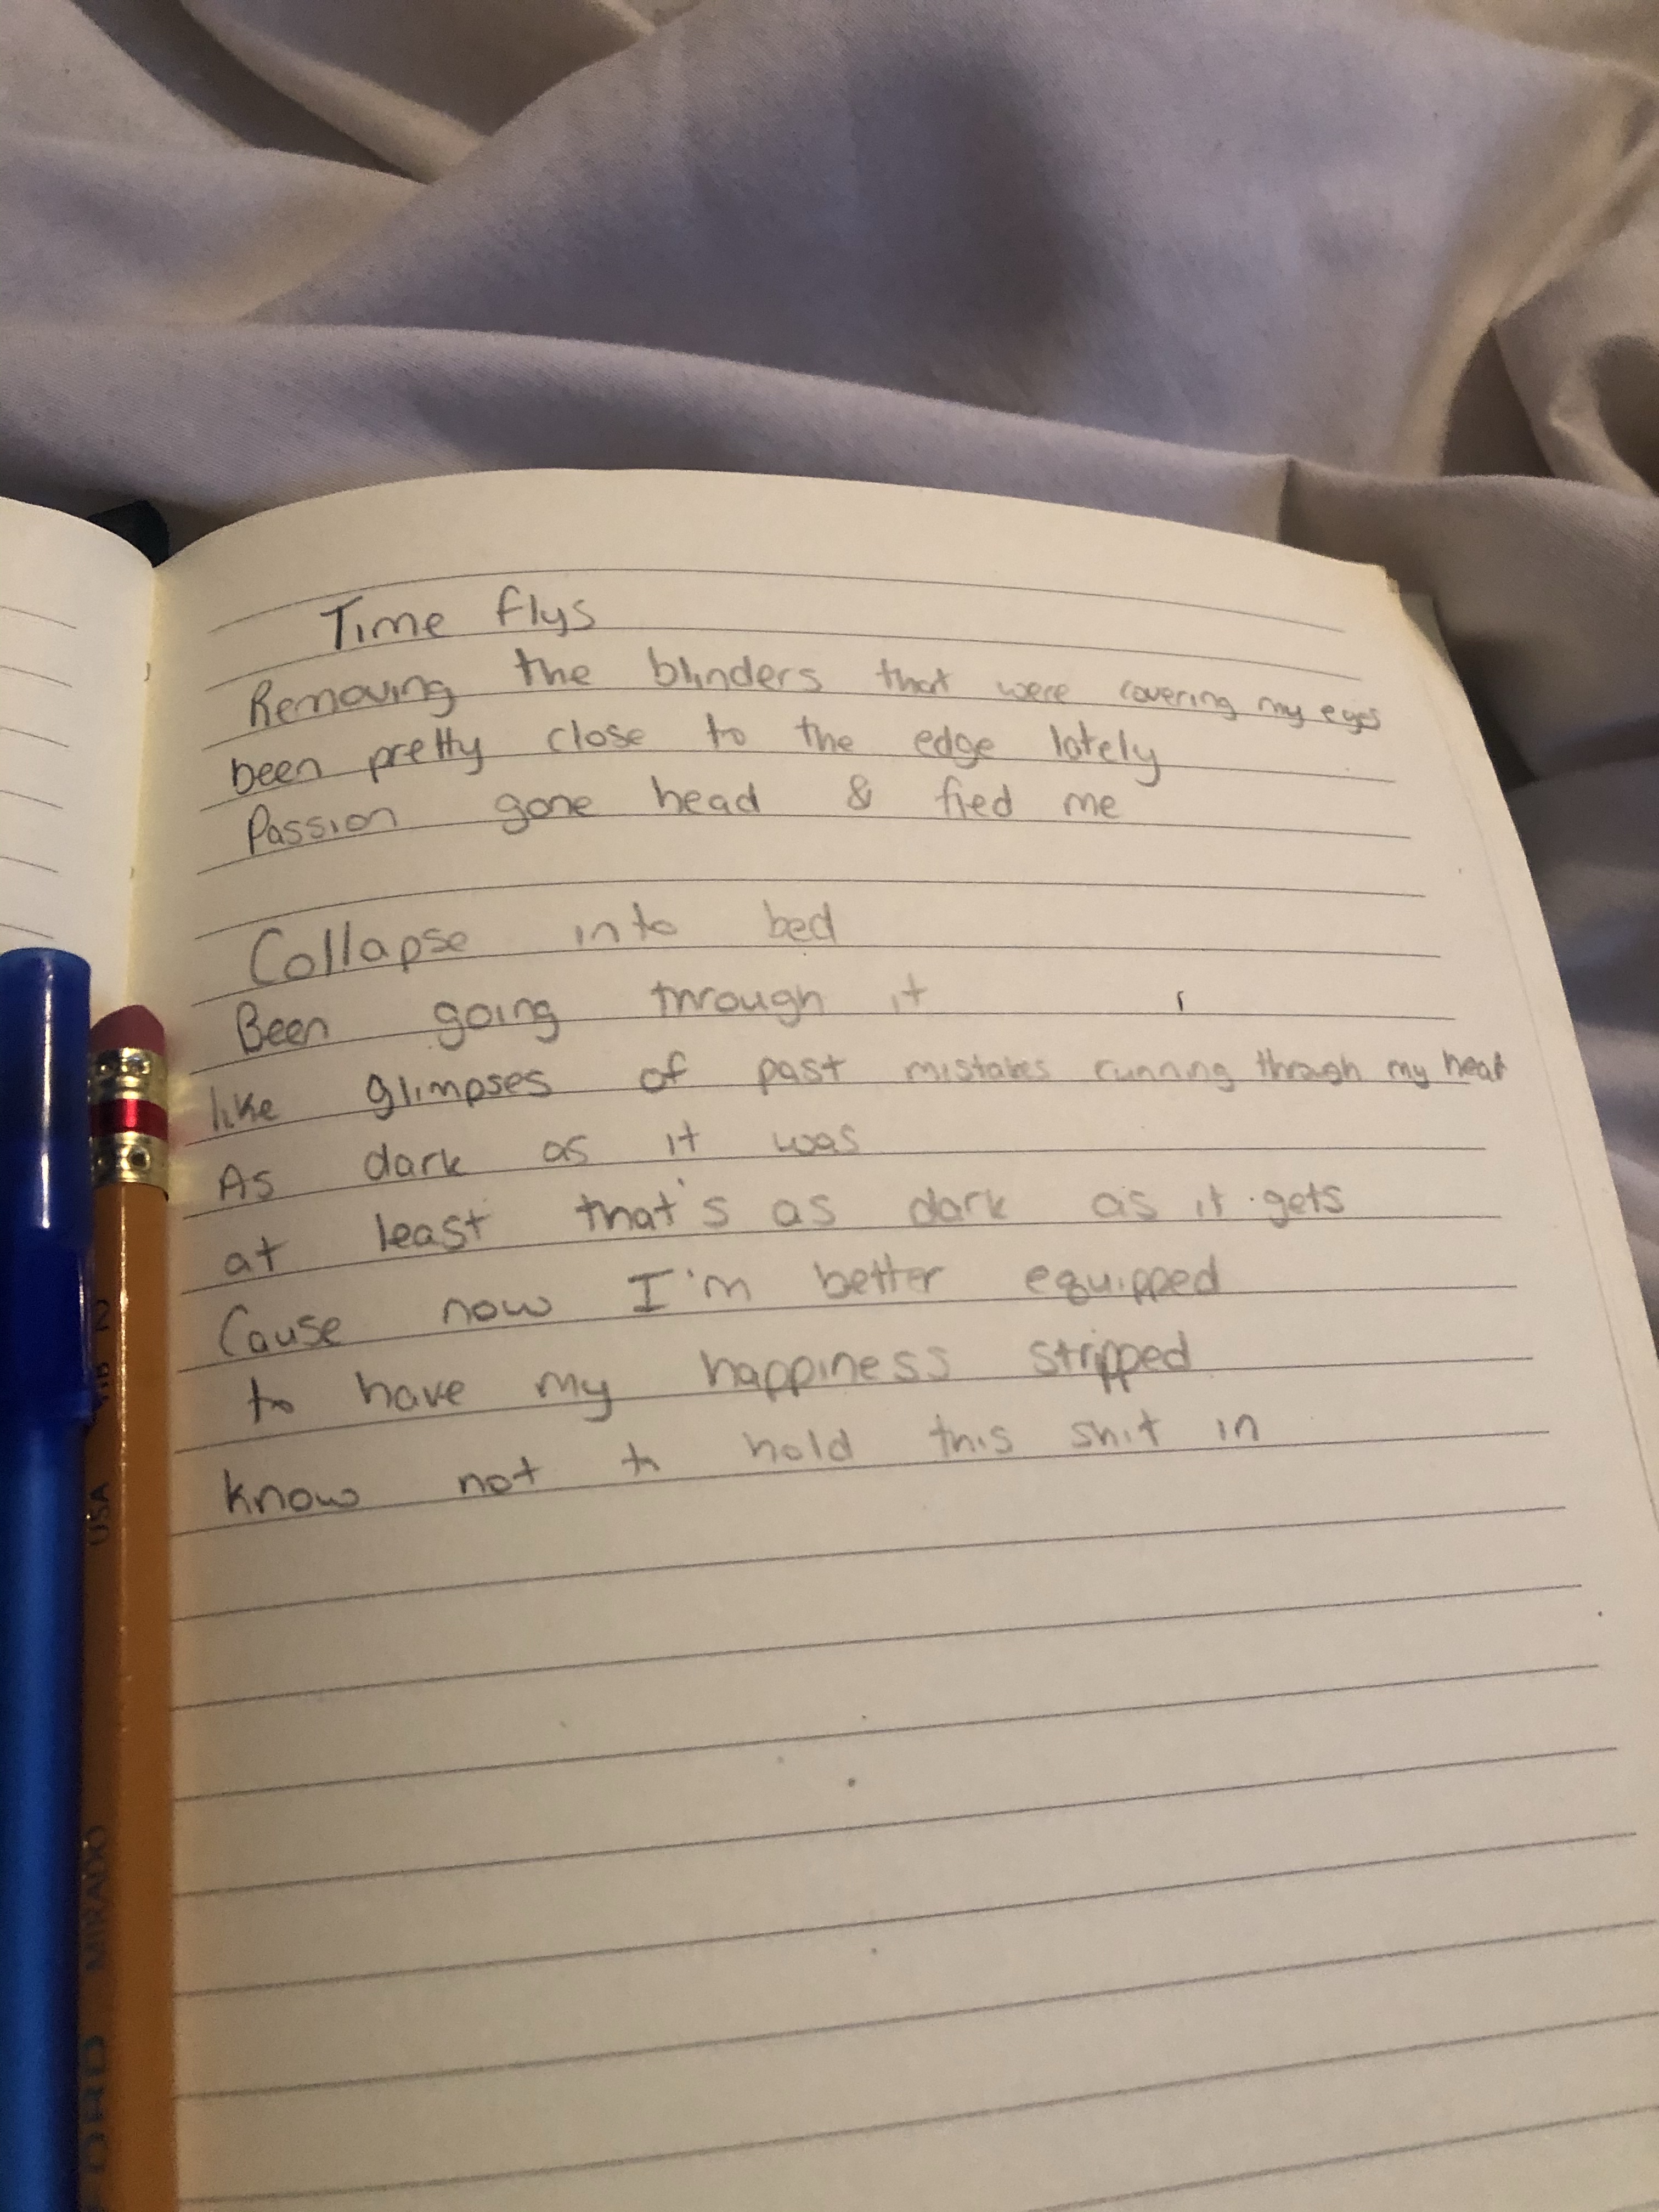 Time flys
Removing the blinders that were covering my eyes
been pretty close to the edge lately
Passion gone head & fied me
Collapse into bed
Been going through it
like glimpses of past mistakes running through my head
As dark as it was
at least that's as dark as it gets
Cause now I'm better equipped
to have my happiness stripped
know not to hold this shit in
USA
MIRADO